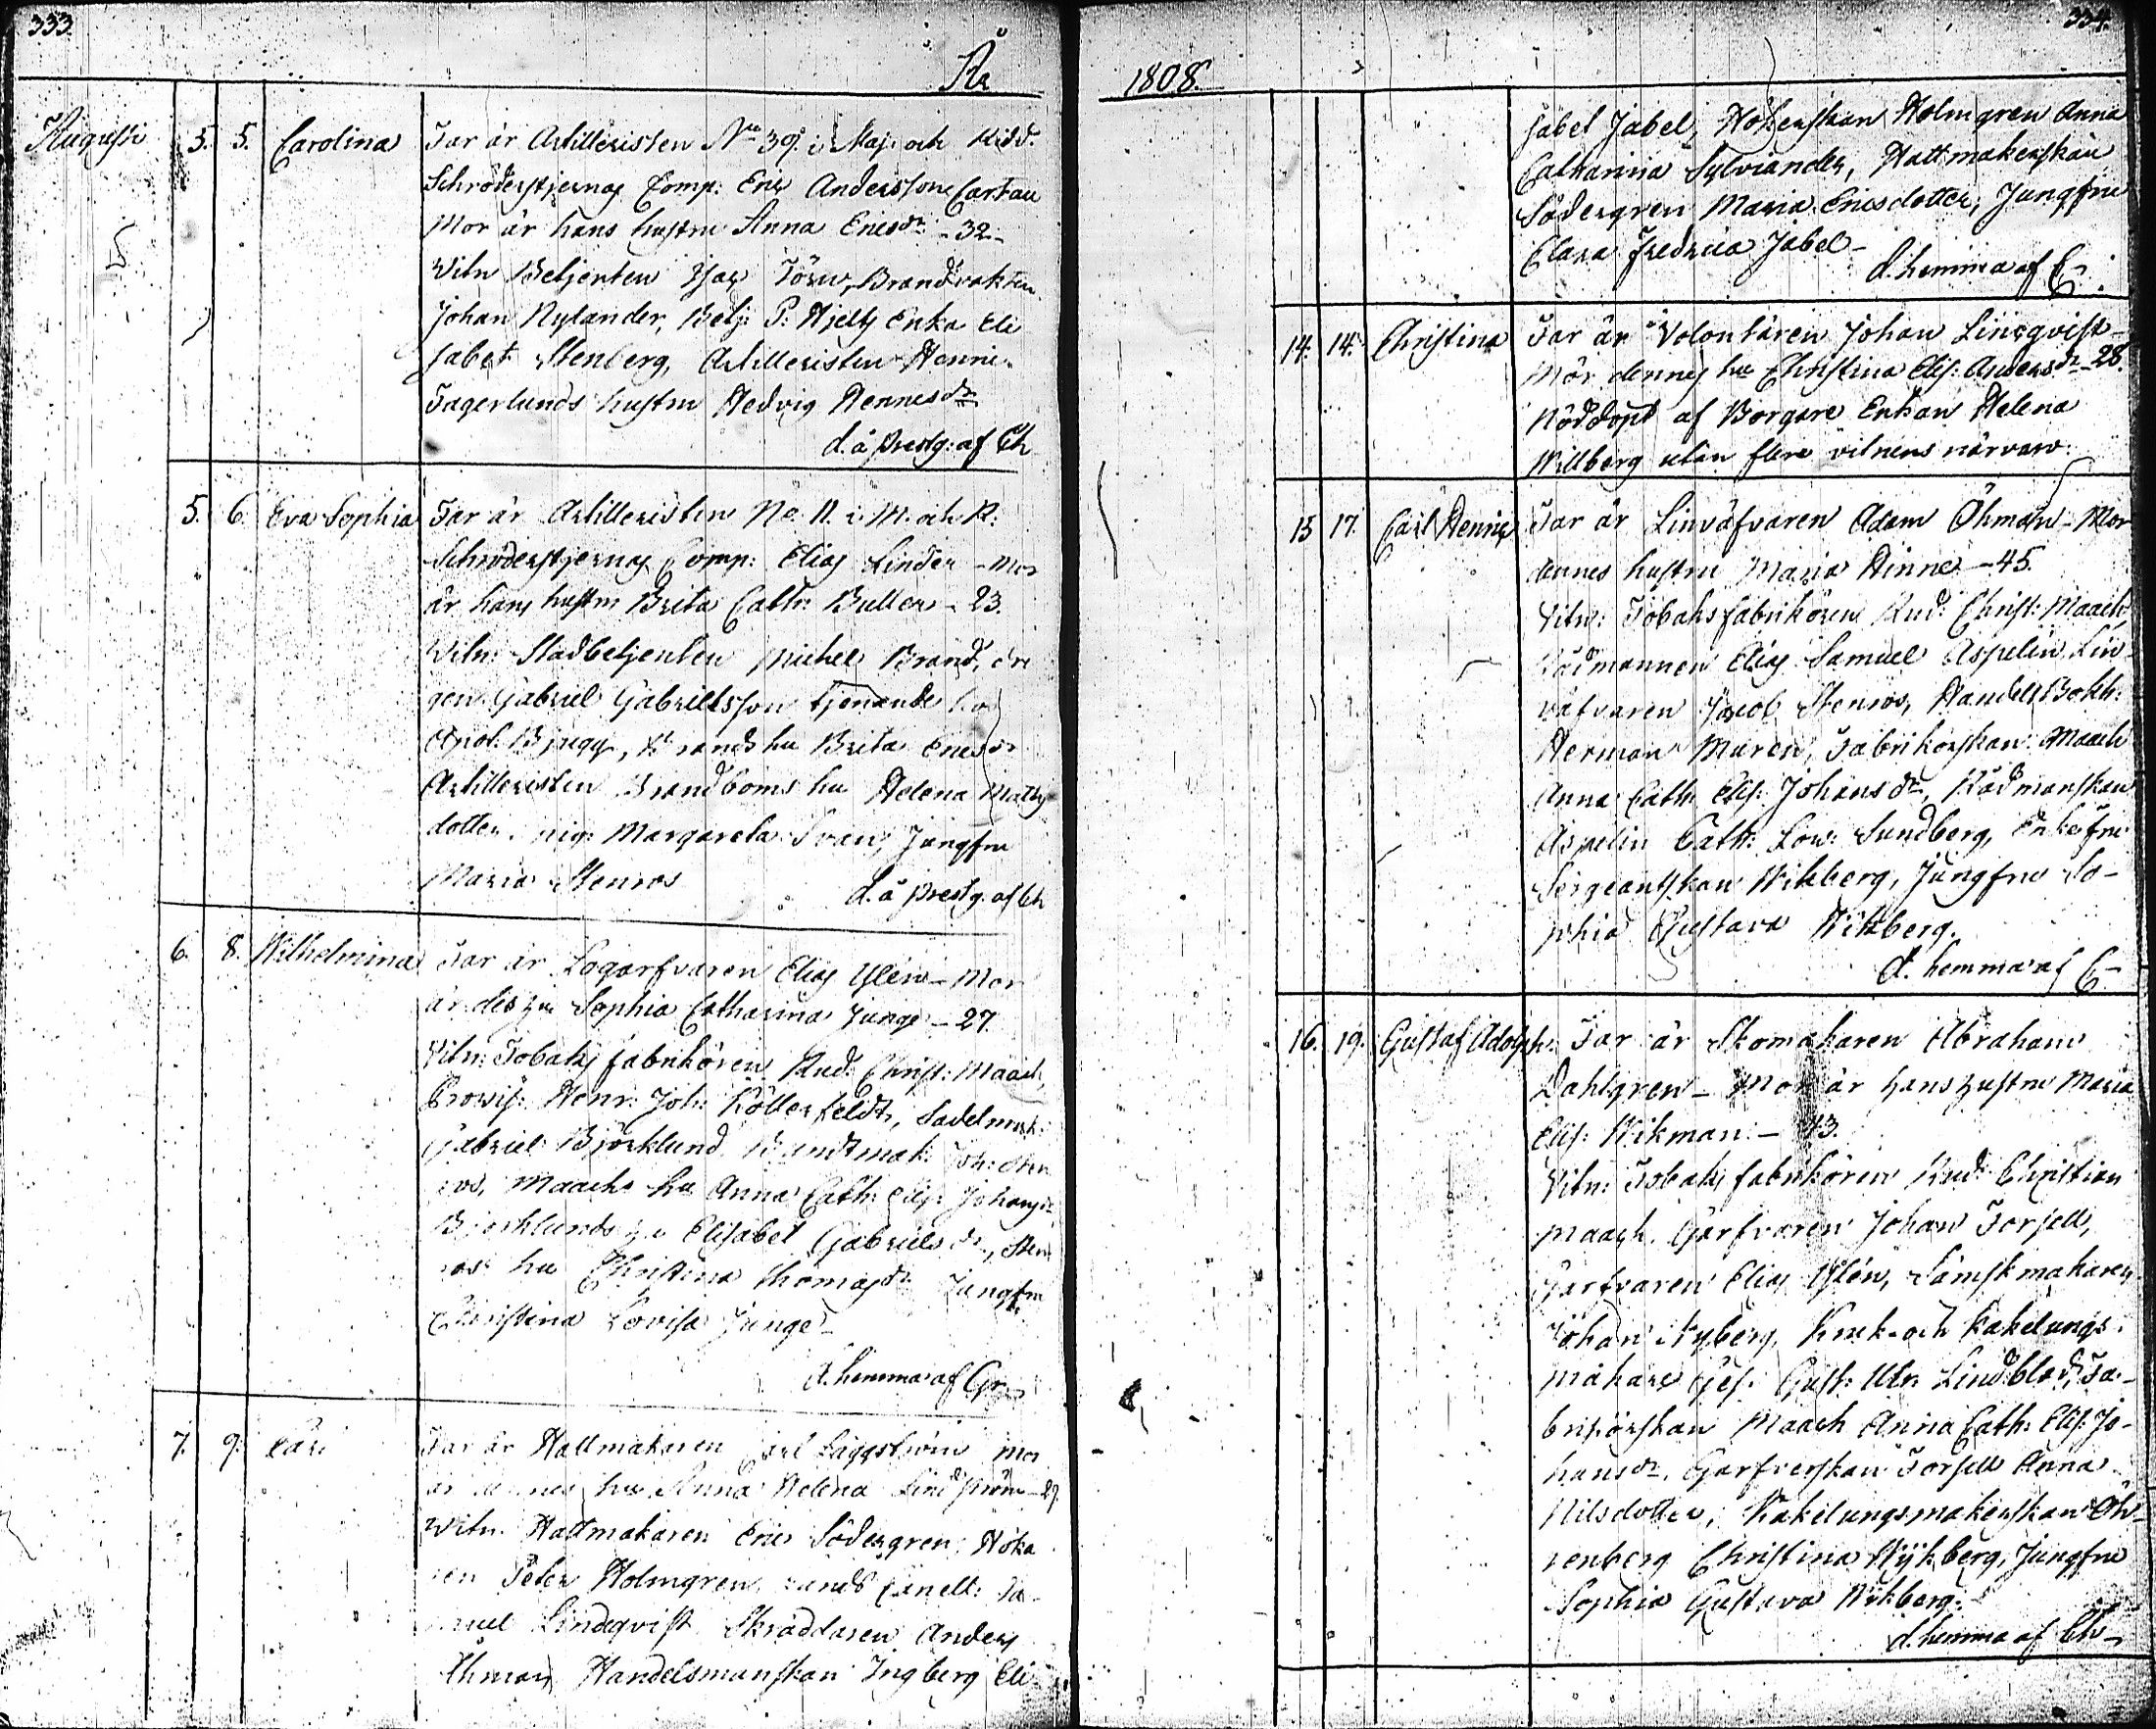 333.
År
Augusti 5. 5. Carolina Far är Artilleristen No 39. i Maj: och Ridd.
Schröderstjernas Comp: Eric Andersson Cartau
Mor är hans hustru Anna Ericsdr - 32 -
Vitn Betjenten Isac Törn, Brandvakten
Johan Nylander, Betj: P: Hjelts Enka Eli
sabet Stenberg, Artilleristen Henric
Fagerlunds hustru Hedvig Hennesdr
d. å prestg: af Ch
5. 6. Eva Sophia Far är Artilleristen No. 11. i M. och R.
Schröderstjernas Comp: Elias Linder - Mor
är hans hustru Brita Cath: Buller - 23.
Vitn: Stadbetjenten Michel Brand, drä
gen Gabriel Gabrielsson tjenande hos
Apot. Brugg, Brands hu Brita Ericsdr
Artilleristen Brandboms hu Helena Matts
dotter, pig: Margareta Svan, Jungfru
Maria Stenros
d. å prestg. af Ch
6. 8. Wilhelmina Far är Logarfvaren Elias Ylén - Mor
är des hu Sophia Catharina Junge - 27.
Vitn: Tobaks fabrikören Rud: Christ: Maack,
Provis: Henr: Joh: Röllerfeldt, Sadelmak:
Gabriel Björklund Buntmak: Joh: Sten
ros, Maacks hu Anna Cath: Elis: Johansdr
Björklunds hu Elisabet Gabrielsdr, Sten
ros hu Christina Thomasdr Jungfru
Christina Lovisa Junge -
d. hemma af Gr
7. 9. Carl Far är Hattmakaren Carl Läggström Mor
är dennes hu Anna Helena Lindström - 29.
Vitn. Hattmakaren Eric Södergren, Höka
ren Peter Holmgren, Cancell: Sa
muel Lindqvist Skräddaren Anders
Öhman, Handelsmanskan Ingberg Eli

334.
1808.
sabet Jabel, Hökerskan Holmgren Anna
Catharina Sylvander, Hattmakerskan
Södergren Maria Ericsdotter, Jungfru
Clara Fredrica Jabel -
d. hemma af C -
14. 14. Christina Far är Volontären Johan Lincqvist -
Mor dennes hu Christina Elis: Andersdr - 28.
Nöddöpt af Borgare Enkan Helena
Willberg utan flere vitnens närvaro.
15 17. Carl Henric Far är Linväfvaren Adam Öhman - Mor
dennes hustru Maria Hinne - 45.
Vitn: Tobaks fabrikören Rud: Christ: Maack
Rådmannen Elias Samuel Aspelin, Lin-
väfvaren Jacob Stenros, Handels Bokh:
Herman Muren, Fabrikörskan Maack
Anna Cath: Elis: Johansdr, Rådmanskan
Aspelin Cath: Lov: Sundberg, Enkefru
Sergeantskan Wikberg, Jungfru So-
phia Gustava Wikberg.
d. hemma af C -
16. 19. Gustaf Adolph. Far är Skomakaren Abraham
Dahlgren - Mor är hans hustru Maria
Elis: Wikman - 43.
Vitn: Tobaks fabrikören Rud: Christian
Maack, Garfvaren Johan Forsell,
Garfvaren Elias Ylén, Sämskmakaren
Johan Nyberg, Kruk- och Kakelungs-
makare Ges: Gust: Ulr: Lindblad, Fa-
brikörskan Maack Anna Cath: Elis: Jo-
hansdr, Garfverskan Forsell Anna
Nilsdotter, Kakelungsmakerskan Öh-
renberg Christina Nykberg, Jungfru
Sophia Gustava Wikberg.
d. hemma af Ch -